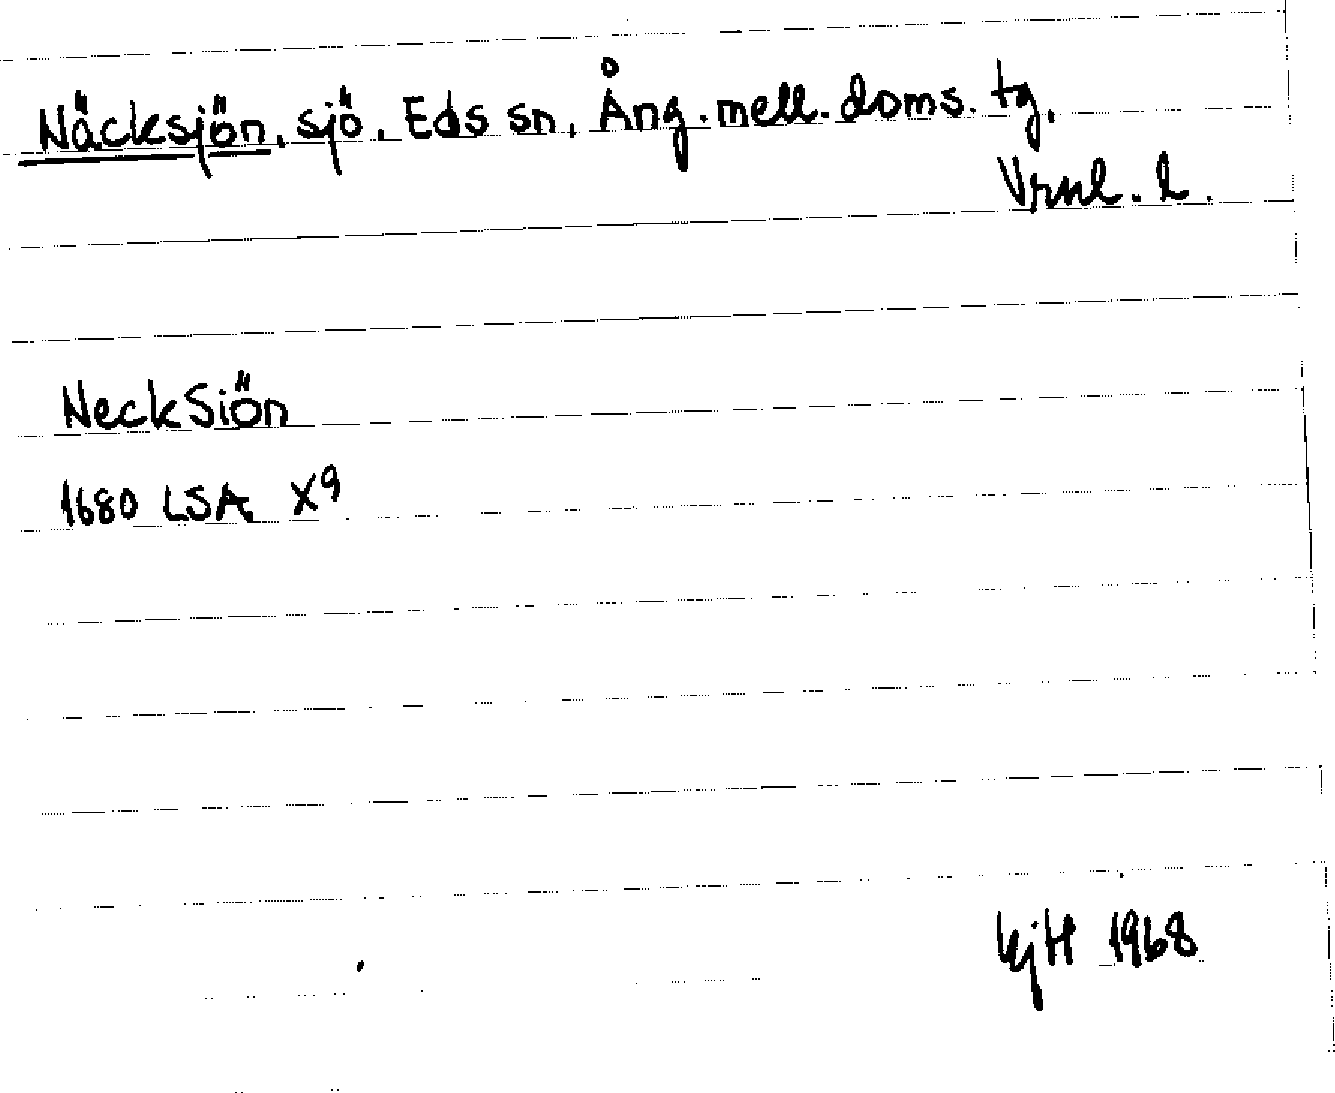 Näcksjön, sjö, Eds sn, Ång. mell. doms. tg,
Vrnl. l.
NeckSiön
1680 LSA X9
kjH 1968